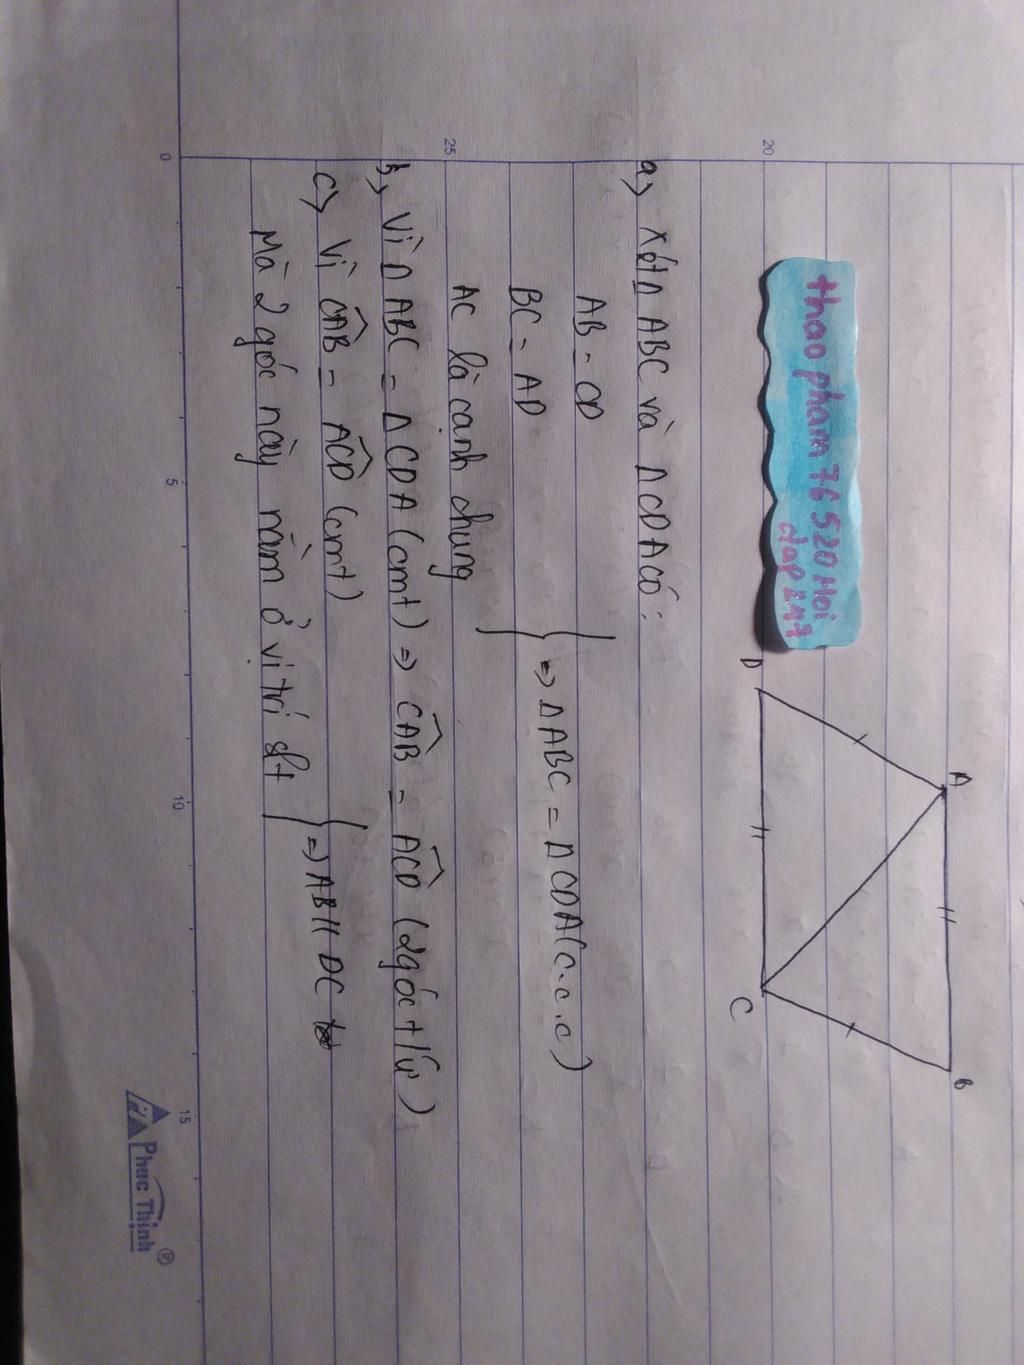 thao pham 76520 Hoi
dap 247
A
B
D
C
a) Xét Δ ABC và Δ CDA có:
AB = CD
BC = AD
AC là cạnh chung
=> Δ ABC = Δ CDA (c.c.c)
b) Vì Δ ABC = Δ CDA (cmt) => CAB = ACD (2 góc t/ứ)
c) Vì CAB = ACD (cmt)
Mà 2 góc này nằm ở vị trí slt
=> AB // DC
20
25
0
5
10
15
Phuc Thinh ®